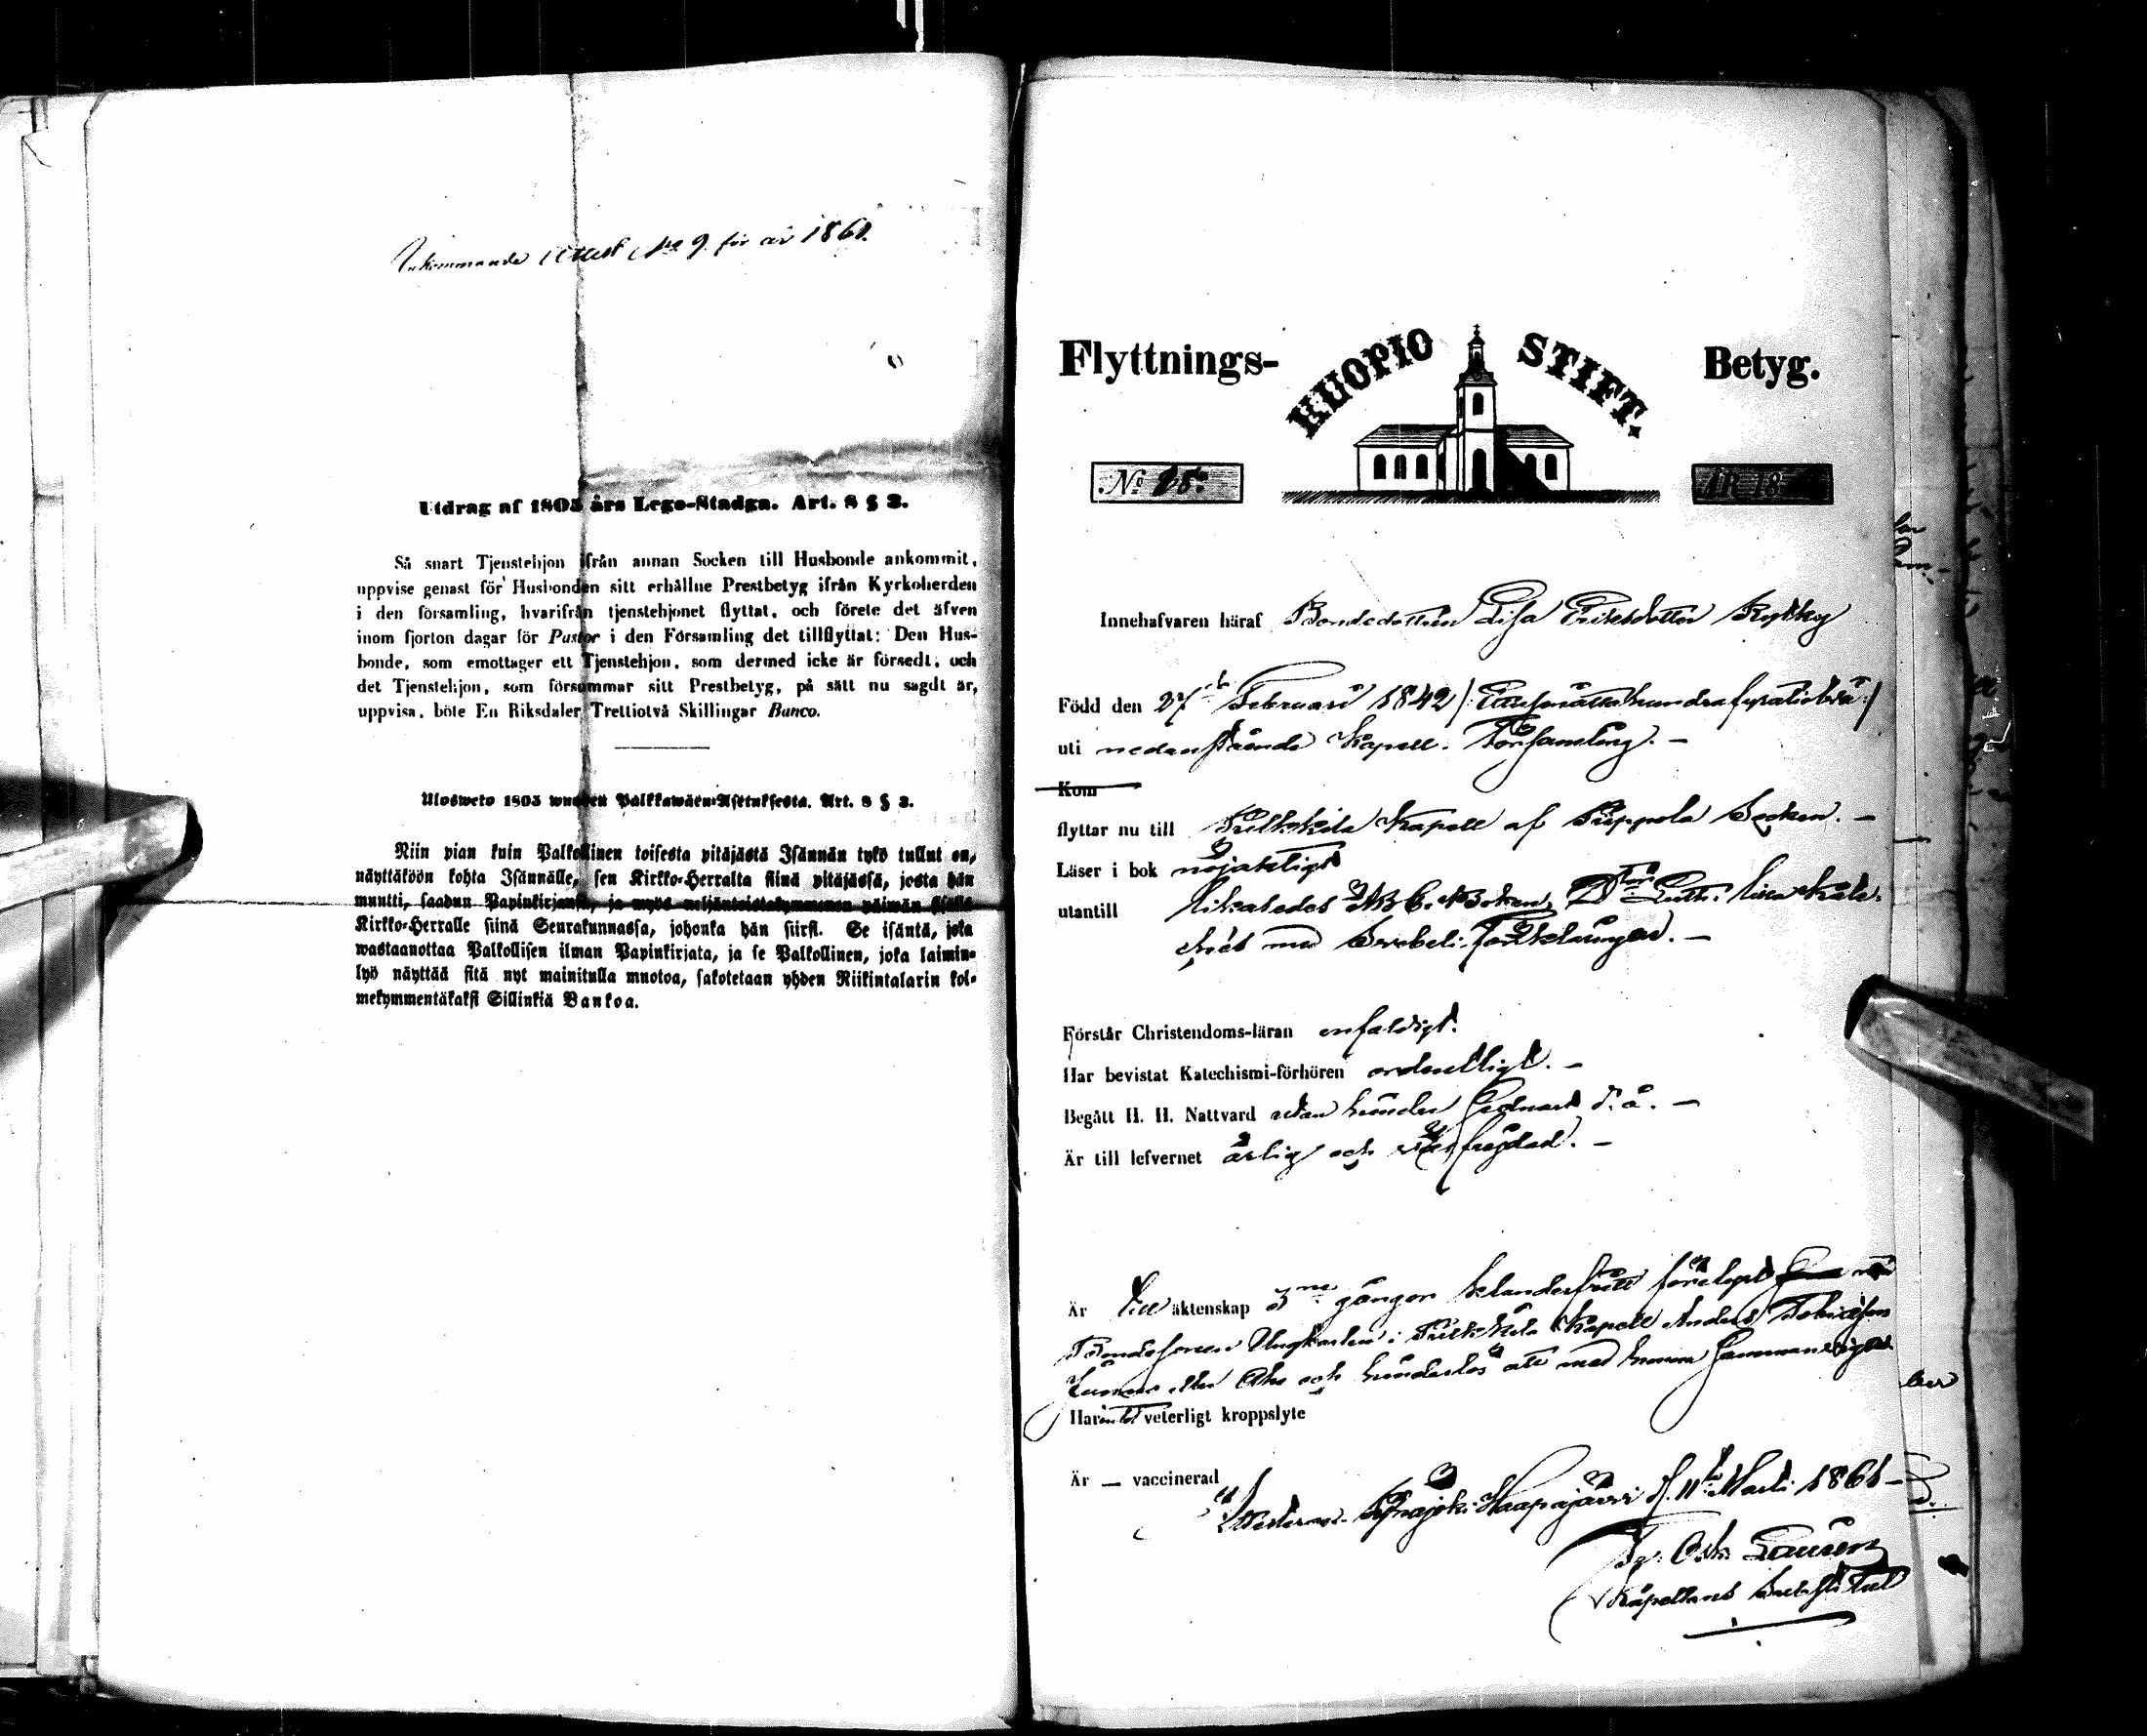 Inkommande Attest No 9. för år 1861.
Utdrag af 1805 års Lego-Stadga. Art. 8 § 3.
Så snart Tjenstehjon ifrån annan Socken till Husbonde ankommit,
uppvise genast för Husbonden sitt erhållne Prestbetyg ifrån Kyrkoherden
i den församling, hvarifrån tjenstehjonet flyttat, och förete det äfven
inom fjorton dagar för Pastor i den Församling det tillflyttat: Den Hus-
bonde, som emottager ett Tjenstehjon, som dermed icke är försedt, och
det Tjenstehjon, som försummar sitt Prestbetyg, på sätt nu sagdt är,
uppvisa, böte En Riksdaler Trettiotvå Skillingar Banco.
Ulosweto 1805 wuoden Palkkawäen-Asetuksesta. Art. 8 § 3.
Niin pian kuin Palkollinen toisesta pitäjästä Isännän tykö tullut on,
näyttäköön kohta Isännälle, sen Kirkko-Herralta siinä pitäjässä, josta hän
muutti, saadun Papinkirjansa, ja myös neljäntoistakymmenen päiwän sisällä
Kirkko-Herralle siinä Seurakunnassa, johonka hän siirsi. Se isäntä, joka
wastaanottaa Palkollisen ilman Papinkirjata, ja se Palkollinen, joka laimin-
lyö näyttää sitä nyt mainitulla muotoa, sakotetaan yhden Riikintalarin kol-
mekymmentäkaksi Sillinkiä Bankoa.
Flyttnings- KUOPIO STIFT. Betyg.
No 28. ÅR 18
Innehafvaren häraf Bondedottren Lisa Eriksdotter
Född den 27de Februari 1842 /: Ettusenåttahundrafyratiotvå :/
uti nedanstående Kapell. Församling. —
Kom
flyttar nu till Pulkkila Kapell af Piippola Socken. —
Läser i bok nöjaktigt
utantill likaledes ABC. Boken, Dr Luth: lilla Kate-
ches med Svebeli. Förklaringar. —
Förstår Christendoms-läran enfaldigt.
Har bevistat Katechismi-förhören ordentligt. —
Begått H. H. Nattvard sedan hinder
Är till lefvernet ärlig och välfrejdad. —
Är till äktenskap 3ne gångor klanderfritt förelyst med
Bondesonen Ungkarlen i Pulkkila Kapell Anders Tobiasson
eller Aho och hinderlös att med honom sammanvigas
Har intet veterligt kroppslyte
Är — vaccinerad
Haapajärvi d. 11te Marti 1861 —
Kapellans Substitut